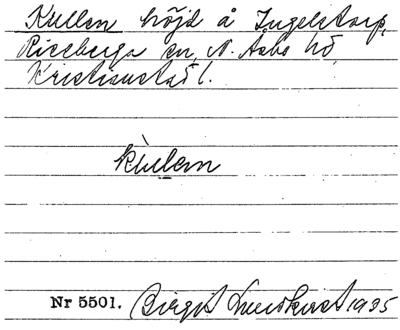 Kullen höjd å Ingelstorp,
Riseberga sn, N. Åsbo hd,
Kristianstad l.
kùlem
Nr 5501. Birgit Lundkvist 1935